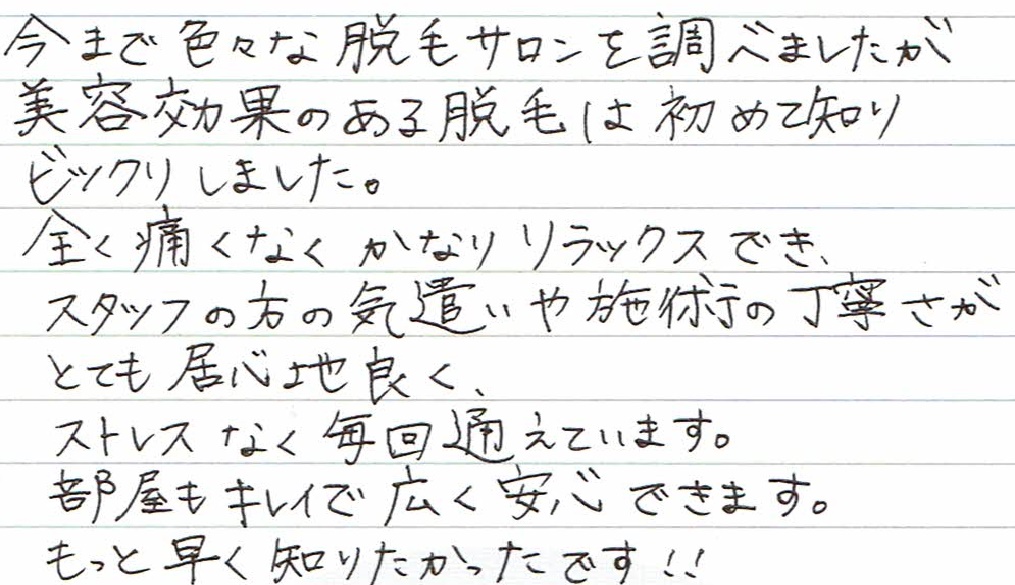 今まで色々な脱毛サロンを調べましたが
美容効果のある脱毛は初めて知り
ビックリしました。
全く痛くなくかなりリラックスでき、
スタッフの方の気遣いや施術の丁寧さが
とても居心地良く、
ストレスなく毎回通えています。
部屋もキレイで広く安心できます。
もっと早く知りたかったです!!